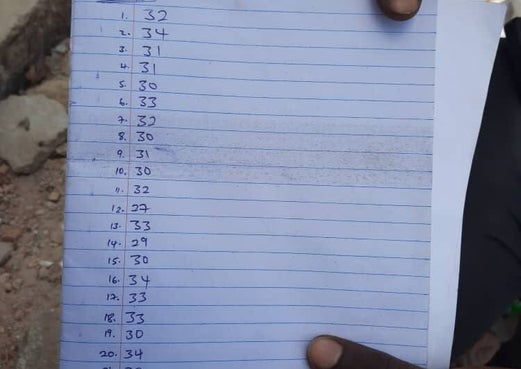 1. 32
2. 34
3. 31
4. 31
5. 30
6. 33
7. 32
8. 30
9. 31
10. 30
11. 32
12. 27
13. 33
14. 29
15. 30
16. 34
17. 33
18. 33
19. 30
20. 34